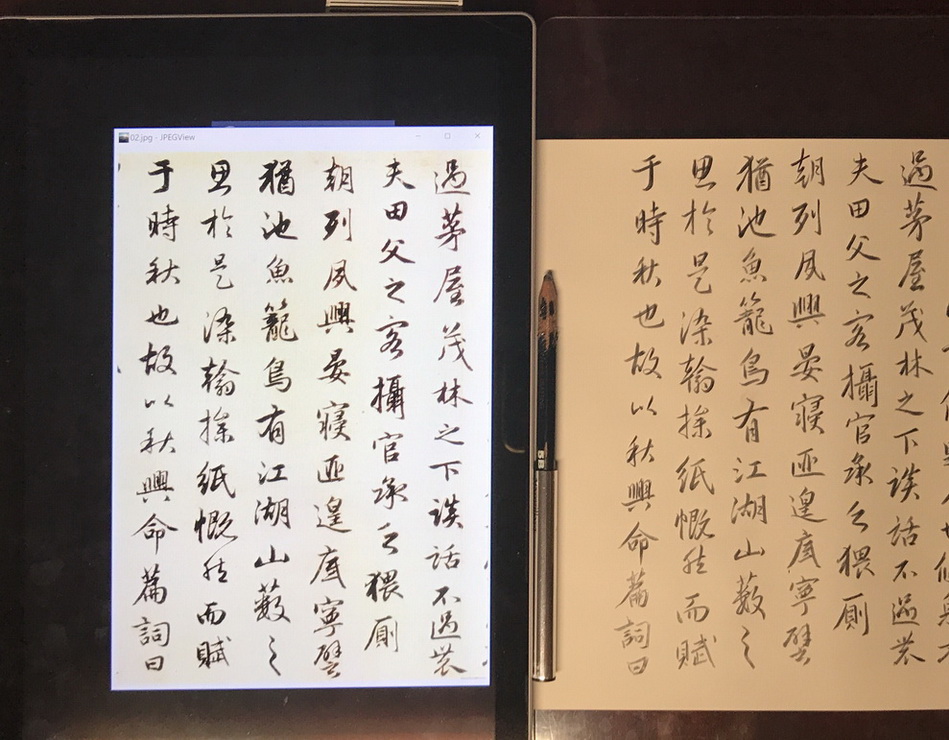 02.jpg - JPEGView
過茅屋茂林之下談話不過農
夫田父之客攝官承乏猥厠
朝列夙興晏寢匪遑底寧譬
猶池魚籠鳥有江湖山藪之
思於是染翰操紙慨然而賦
于時秋也故以秋興命篇詞曰
過茅屋茂林之下談話不過農
夫田父之客攝官承乏猥厠
朝列夙興晏寢匪遑底寧譬
猶池魚籠鳥有江湖山藪之
思於是染翰操紙慨然而賦
于時秋也故以秋興命篇詞曰